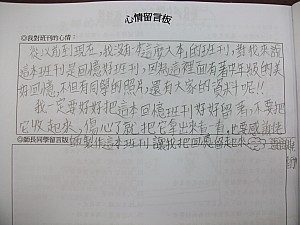 心情留言板
◎我對班刊的心情：
從以前到現在，我沒看過一本這麼大本的班刊，對我來說
這本班刊是回憶好班刊，因為這裡面有著中年級的美
好回憶，不但有同學的照片，還有大家的資料呢!!
我一定要好好把這本回憶班刊好好留著，不要把
它收起來，傷心了就把它拿出來看一看，也要感謝
師製作這本班刊讓我把回憶留起來
◎師長同學留言版